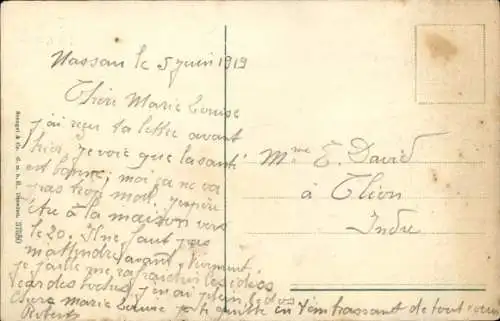 Nassau le 5 juin 1919
Chère Marie Louise
j'ai reçu ta lettre avant
hier, je vois que la santé
est bonne, moi ça ne va
pas trop mal. J'espère
être à la maison vers
le 20. Il ne faut pas
m'attendre avant, Vivement
que je me rafraichir les idées
car des
Chère Marie Louise je te quitte en t'embrassant de tout
Robert
Mme E. David
à Clion
Indre
Stengel & Co., G. m. b. H., Dresden. 37680